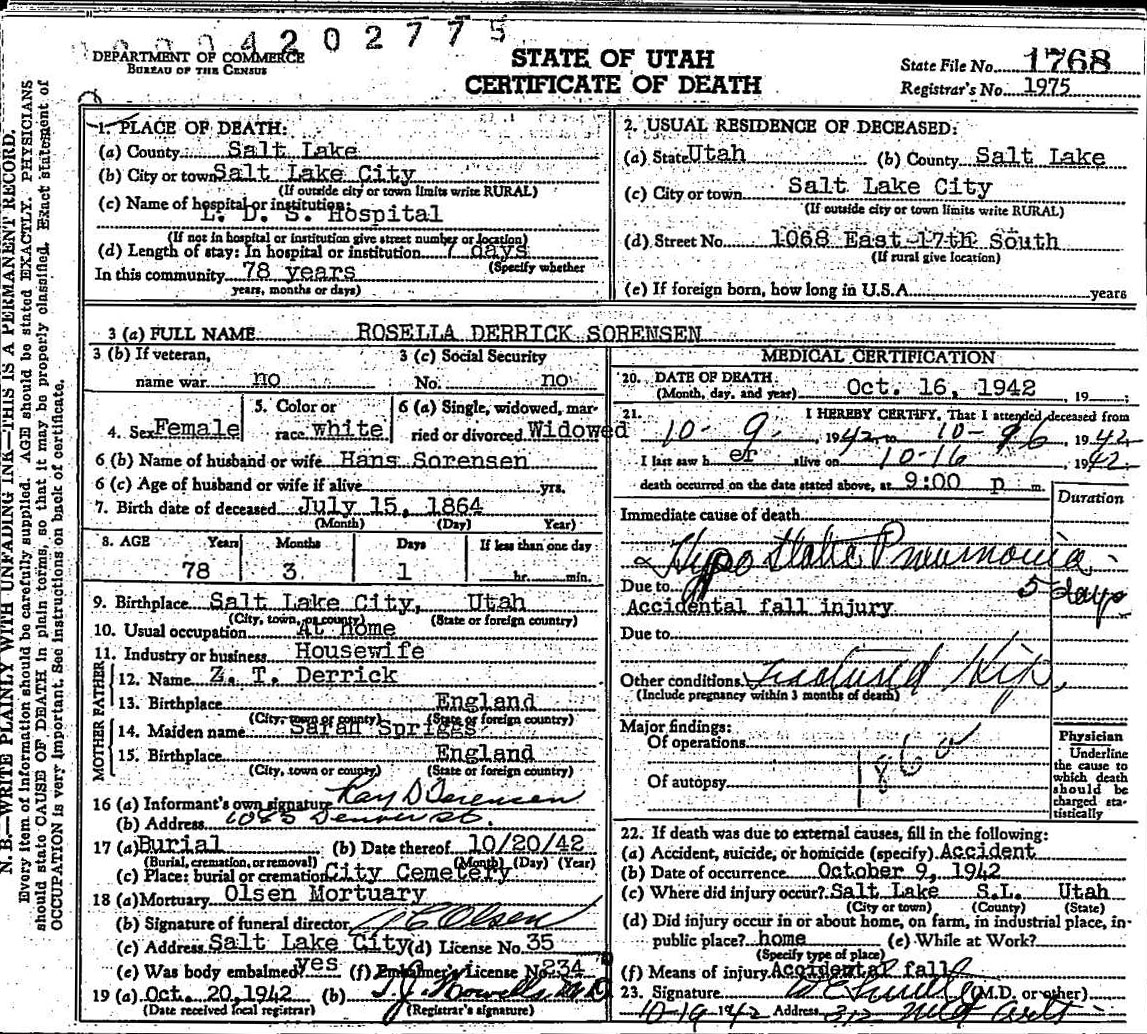 0004202775
DEPARTMENT OF COMMERCE
BUREAU OF THE CENSUS
STATE OF UTAH
CERTIFICATE OF DEATH
State File No. 1768
Registrar's No. 1975
N. B.—WRITE PLAINLY WITH UNFADING INK—THIS IS A PERMANENT RECORD.
Every item of information should be carefully supplied. AGE should be stated EXACTLY. PHYSICIANS
should state CAUSE OF DEATH in plain terms, so that it may be properly classified. Exact statement of
OCCUPATION is very important. See instructions on back of certificate.
1. PLACE OF DEATH:
(a) County Salt Lake
(b) City or town Salt Lake City
(If outside city or town limits write RURAL)
(c) Name of hospital or institution:
L. D. S. Hospital
(If not in hospital or institution give street number or location)
(d) Length of stay: In hospital or institution 7 days
(Specify whether
In this community 78 years
years, months or days)
2. USUAL RESIDENCE OF DECEASED:
(a) State Utah (b) County Salt Lake
(c) City or town Salt Lake City
(If outside city or town limits write RURAL)
(d) Street No. 1068 East 17th South
(If rural give location)
(e) If foreign born, how long in U.S.A. years
3 (a) FULL NAME ROSELLA DERRICK SORENSEN
3 (b) If veteran,
name war no
3 (c) Social Security
No. no
4. Sex Female
5. Color or
race white
6 (a) Single, widowed, mar-
ried or divorced Widowed
6 (b) Name of husband or wife Hans Sorensen
6 (c) Age of husband or wife if alive yrs.
7. Birth date of deceased July 15, 1864
(Month) (Day) Year)
8. AGE Years Months Days If less than one day
78 3 1 hr. min.
9. Birthplace Salt Lake City, Utah
(City, town, or county) (State or foreign country)
10. Usual occupation At home
11. Industry or business Housewife
FATHER
12. Name Z. T. Derrick
13. Birthplace England
(City, town or county) (State or foreign country)
MOTHER
14. Maiden name Sarah Spriggs
15. Birthplace England
(City, town or county) (State or foreign country)
16 (a) Informant's own signature Ray D Sorensen
(b) Address Denver St.
17 (a) Burial (b) Date thereof 10/20/42
(Burial, cremation, or removal) (Month) (Day) (Year)
(c) Place: burial or cremation City Cemetery
18 (a) Mortuary Olsen Mortuary
(b) Signature of funeral director Olsen
(c) Address Salt Lake City (d) License No. 35
(e) Was body embalmed? yes (f) Embalmer's License No. 234
19 (a) Oct. 20, 1942 (b) T. J. Howells M D
(Date received local registrar) (Registrar's signature)
MEDICAL CERTIFICATION
20. DATE OF DEATH
(Month, day, and year) Oct. 16, 1942, 19 ;
21. I HEREBY CERTIFY, That I attended deceased from
10 - 9, 1942 to 10 - 16, 1942
I last saw h er alive on 10-16, 1942.
death occurred on the date stated above, at 9:00 p m.
Duration
Immediate cause of death
Hypostatic Pneumonia
5 days
Due to
Accidental fall injury
Due to
Other conditions Fractured Hip,
(Include pregnancy within 3 months of death)
Major findings:
Of operations
Of autopsy
186a
Physician
Underline
the cause to
which death
should be
charged sta-
tistically
22. If death was due to external causes, fill in the following:
(a) Accident, suicide, or homicide (specify) Accident
(b) Date of occurrence October 9, 1942
(c) Where did injury occur? Salt Lake S.L. Utah
(City or town) (County) (State)
(d) Did injury occur in or about home, on farm, in industrial place, in-
public place? home (e) While at Work?
(Specify type of place)
(f) Means of injury Accidental fall
23. Signature (M.D. or other)
10-19 1942 Address